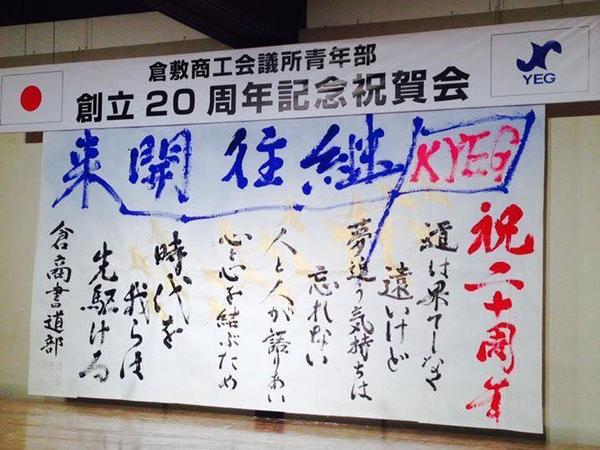 倉敷商工会議所青年部
創立20周年記念祝賀会
YEG
KYEG
継往開来
祝二十周年
道は果てしなく
遠いけど
夢追う気持ちは
忘れない
人と人が語りあい
心と心を結ぶため
時代を
我らは
先駆ける
倉商書道部